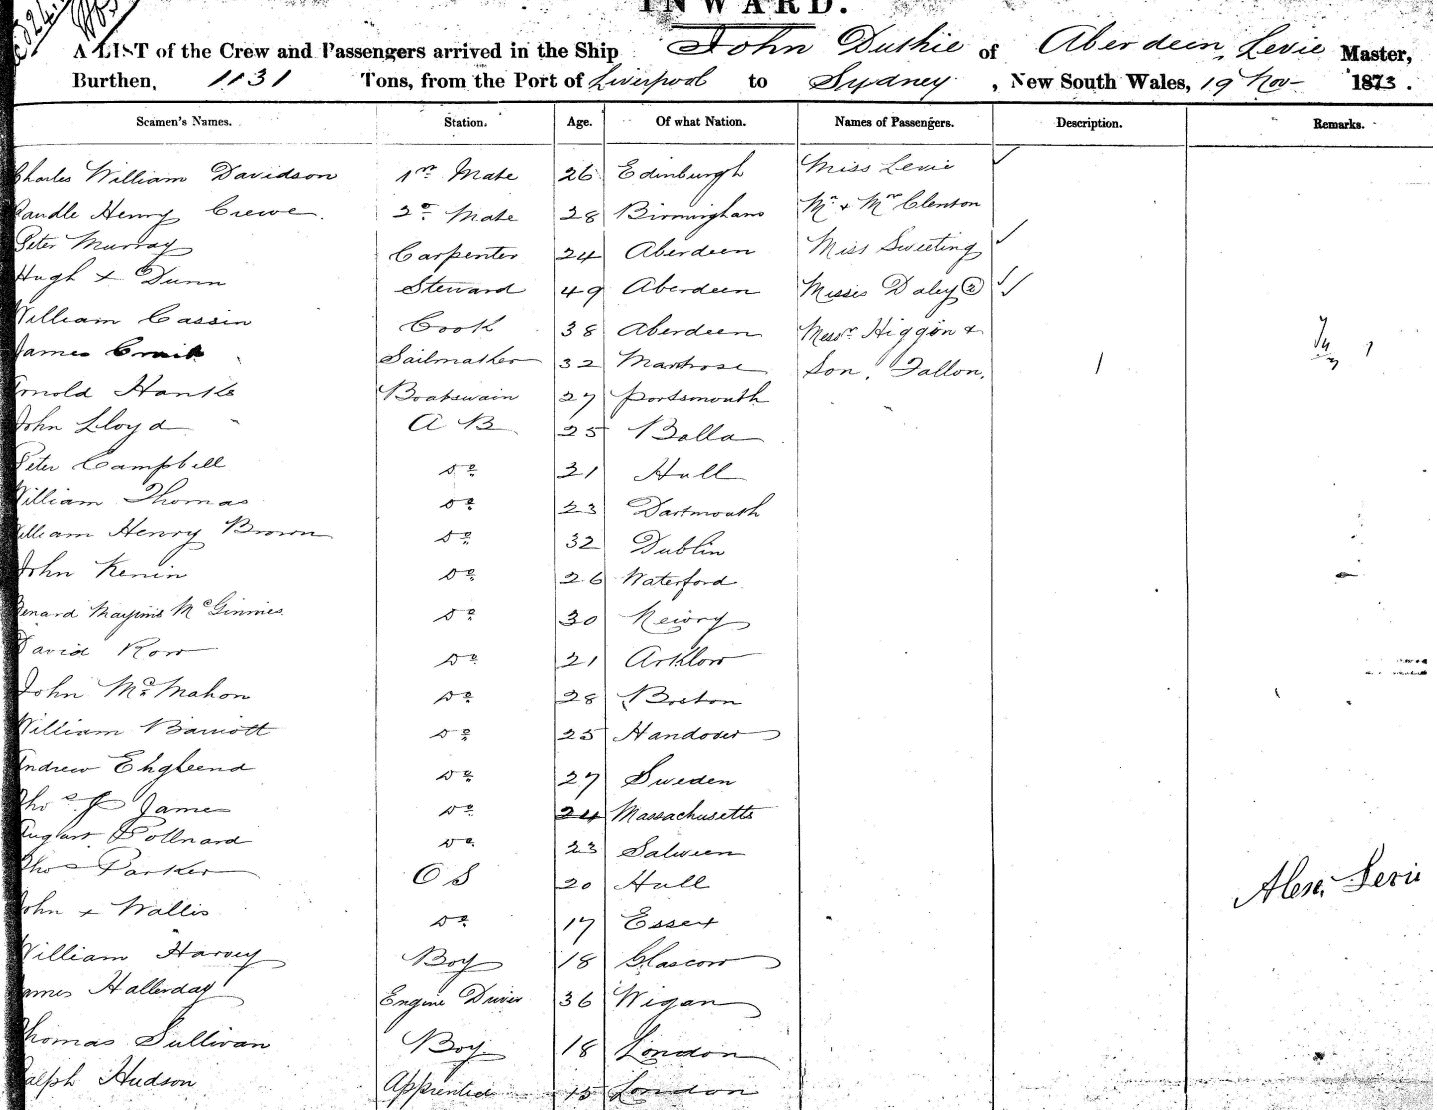 INWARD.
A LIST of the Crew and Passengers arrived in the Ship John Duthie of Aberdeen, Levie Master,
Burthen, 1131 Tons, from the Port of Liverpool to Sydney, New South Wales, 19 Nov 1873.
Seamen's Names. Station. Age. Of what Nation. Names of Passengers. Description. Remarks.
Charles William Davidson 1st Mate 26 Edinburgh Miss Levie
Henry Crewe. 2d Mate 28 Birmingham Mr & Mrs Clenton
Peter Murray Carpenter 24 Aberdeen Miss Sweeting
Hugh x Dunn Steward 49 Aberdeen Misses Daley 2
William Cassin Cook 38 Aberdeen Messrs Higgin &
James Craik Sailmaker 32 Montrose Son, Fallon. 1
Arnold Hanks Boatswain 27 Portsmouth
John Lloyd A B 25 Balla
Peter Campbell Do 31 Hull
William Thomas Do 23 Dartmouth
William Henry Brown Do 32 Dublin
John Kenin Do 26 Waterford
Benard McGinnies Do 30 Newry
David Row Do 21 Arklow
John McMahon Do 28 Boston
William Barriott Do 25 Handover
Andrew Do 27 Sweden
Thos J James Do 24 Massachusetts
August Pollnard Do 23 Salween
Thos Parker O S 20 Hull
John x Wallis Do 17 Essex
Alexr Levie
William Harvey Boy 18 Glascow
James Hallerday Engine Driver 36 Wigan
Thomas Sullivan Boy 18 London
Ralph Hudson Apprentice 15 London